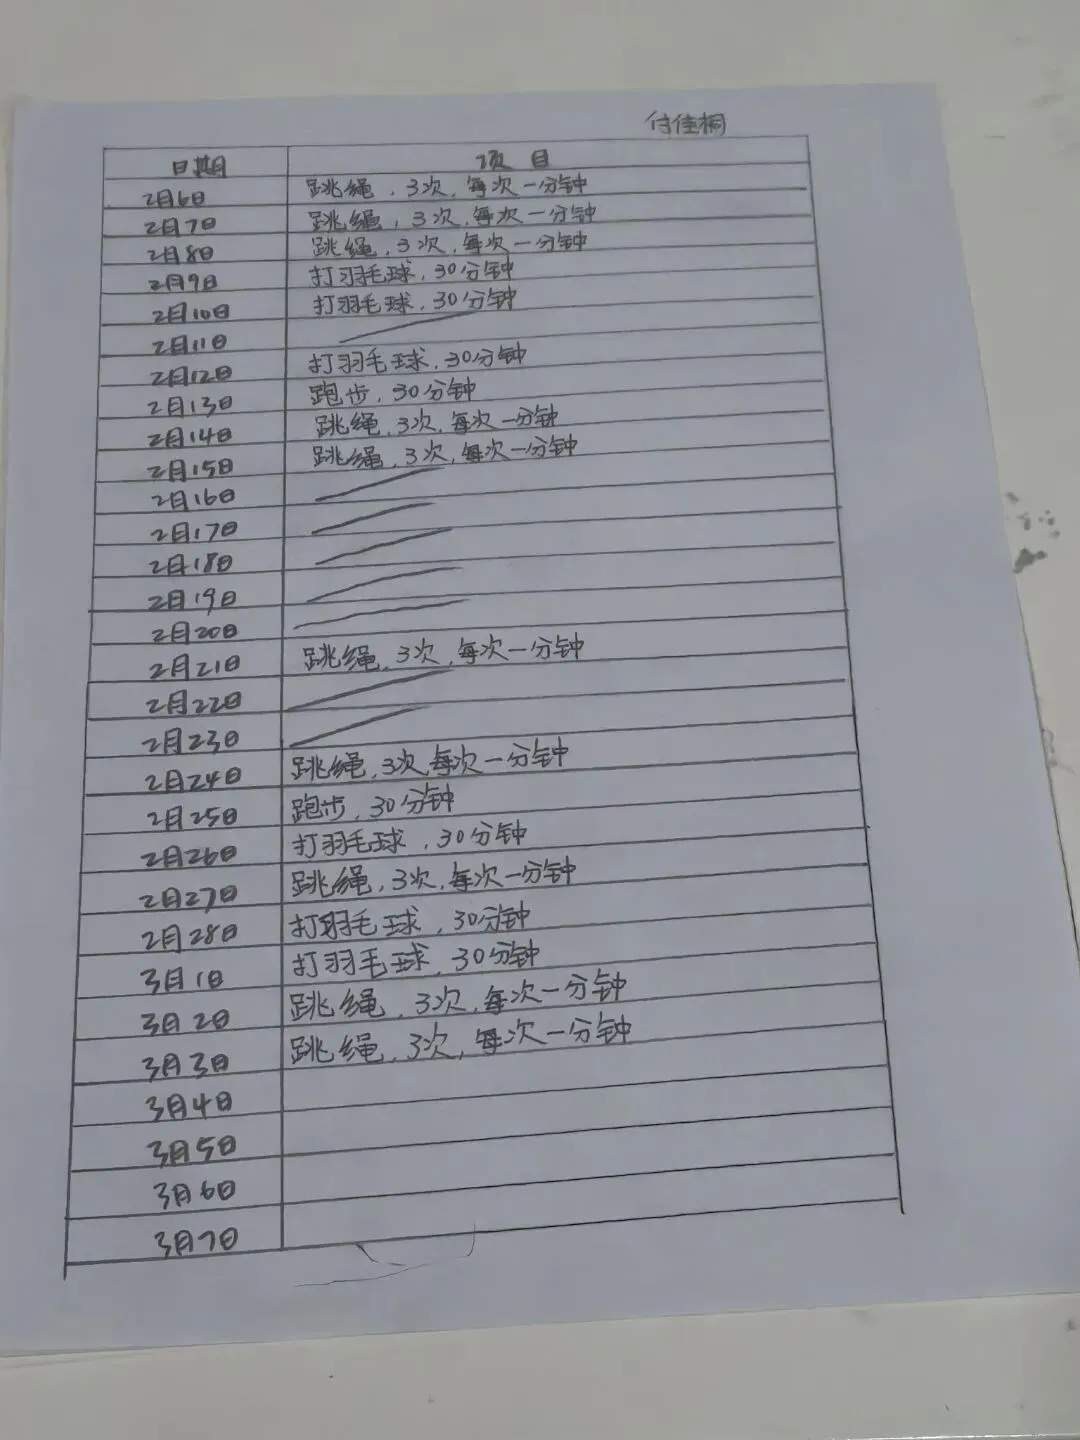 付佳桐
日期 项目
2月6日 跳绳,3次,每次一分钟
2月7日 跳绳,3次,每次一分钟
2月8日 跳绳,3次,每次一分钟
2月9日 打羽毛球,30分钟
2月10日 打羽毛球,30分钟
2月11日
2月12日 打羽毛球,30分钟
2月13日 跑步,30分钟
2月14日 跳绳,3次,每次一分钟
2月15日 跳绳,3次,每次一分钟
2月16日
2月17日
2月18日
2月19日
2月20日
2月21日 跳绳,3次,每次一分钟
2月22日
2月23日
2月24日 跳绳,3次,每次一分钟
2月25日 跑步,30分钟
2月26日 打羽毛球,30分钟
2月27日 跳绳,3次,每次一分钟
2月28日 打羽毛球,30分钟
3月1日 打羽毛球,30分钟
3月2日 跳绳,3次,每次一分钟
3月3日 跳绳,3次,每次一分钟
3月4日
3月5日
3月6日
3月7日